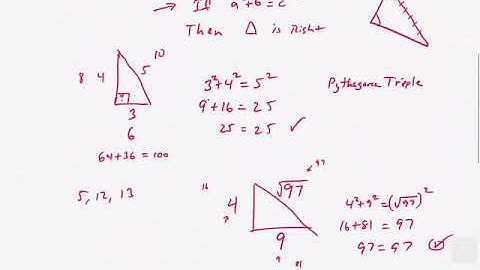 → If a²+b²=c²
Then △ is Right
8 4 5 10
3
6
64+36 = 100
3²+4² = 5²
9+16 = 25
25 = 25 ✓
Pythagorean Triple
5, 12, 13
16 4 √97 97
9
81
4²+9² = (√97)²
16+81 = 97
97 = 97 ✓